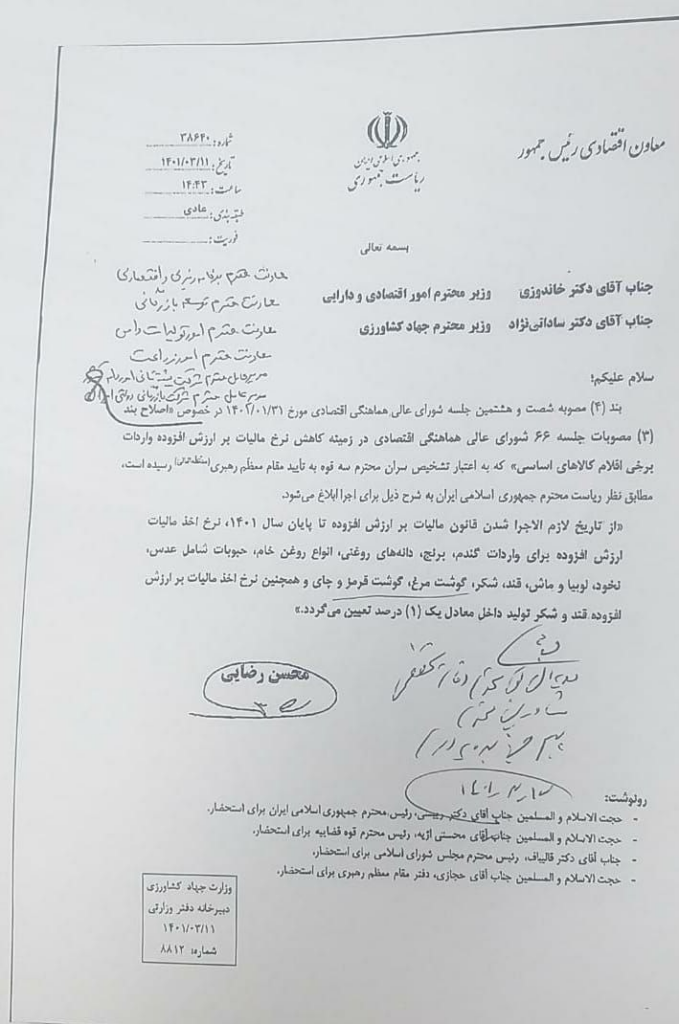 معاون اقتصادی رئیس جمهور
جمهوری اسلامی ایران
ریاست جمهوری
شماره: ۳۸۶۴۰
تاریخ: ۱۴۰۱/۰۳/۱۱
ساعت: ۱۴:۴۳
طبقه‌بندی: عادی
فوریت:
بسمه تعالی
معاونت محترم برنامه ریزی و اقتصادی
معاونت محترم توسعه بازرگانی
معاونت محترم امور تولیدات دامی
معاونت محترم امور زراعت
مدیرعامل محترم شرکت پشتیبانی امور دام
مدیر عامل محترم شرکت بازرگانی دولتی ایران
جناب آقای دکتر خاندوزی وزیر محترم امور اقتصادی و دارایی
جناب آقای دکتر ساداتی‌نژاد وزیر محترم جهاد کشاورزی
سلام علیکم؛
بند (۴) مصوبه شصت و هشتمین جلسه شورای عالی هماهنگی اقتصادی مورخ ۱۴۰۲/۰۱/۳۱ در خصوص «اصلاح بند
(۳) مصوبات جلسه ۶۶ شورای عالی هماهنگی اقتصادی در زمینه کاهش نرخ مالیات بر ارزش افزوده واردات
برخی اقلام کالاهای اساسی» که به اعتبار تشخیص سران محترم سه قوه به تأیید مقام معظم رهبری(مدظله‌العالی) رسیده است،
مطابق نظر ریاست محترم جمهوری اسلامی ایران به شرح ذیل برای اجرا ابلاغ می‌شود.
«از تاریخ لازم الاجرا شدن قانون مالیات بر ارزش افزوده تا پایان سال ۱۴۰۱، نرخ اخذ مالیات
ارزش افزوده برای واردات گندم، برنج، دانه‌های روغنی، انواع روغن خام، حبوبات شامل عدس،
نخود، لوبیا و ماش، قند، شکر، گوشت مرغ، گوشت قرمز و چای و همچنین نرخ اخذ مالیات بر ارزش
افزوده قند و شکر تولید داخل معادل یک (۱) درصد تعیین می‌گردد.»
محسن رضایی
رونوشت:
- حجت الاسلام و المسلمین جناب آقای دکتر رییسی، رئیس محترم جمهوری اسلامی ایران برای استحضار.
- حجت الاسلام و المسلمین جناب آقای محسنی اژیه، رئیس محترم قوه قضاییه برای استحضار.
- جناب آقای دکتر قالیباف، رئیس محترم مجلس شورای اسلامی برای استحضار.
- حجت الاسلام و المسلمین جناب آقای حجازی، دفتر مقام معظم رهبری برای استحضار.
وزارت جهاد کشاورزی
دبیرخانه دفتر وزارتی
۱۴۰۱/۰۳/۱۱
شماره: ۸۸۱۲